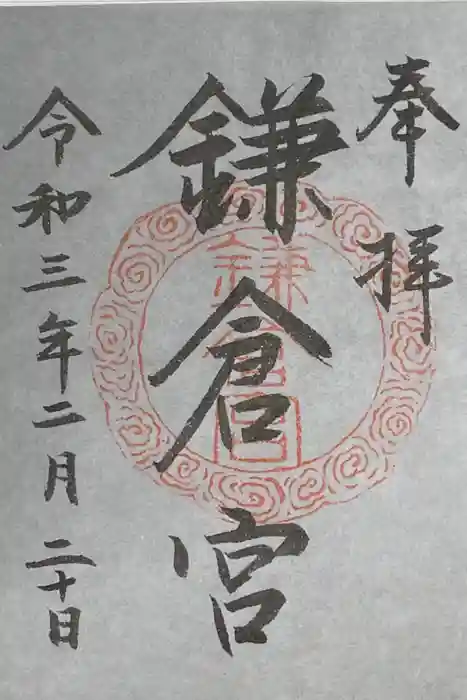 奉拝
鎌倉宮
令和三年二月二十日
鎌倉宮